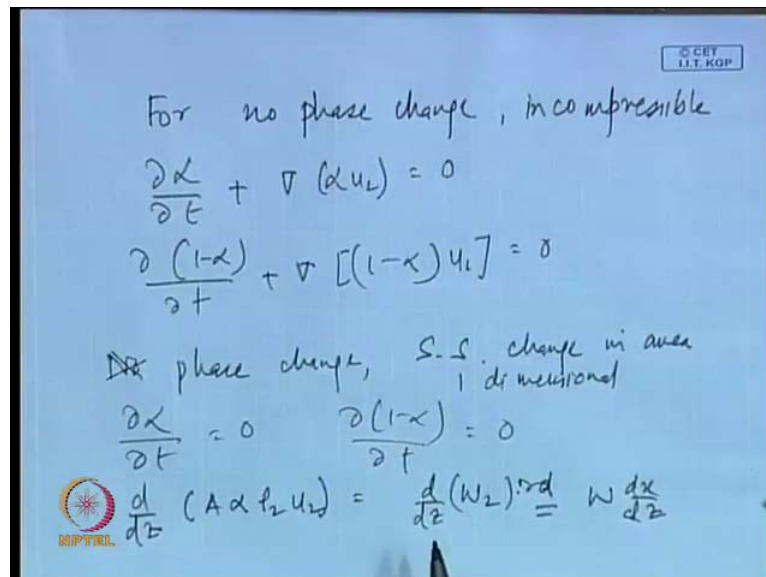 © CET
I.I.T. KGP
For no phase change, incompressible
∂α/∂t + ∇ (αu₂) = 0
∂(1-α)/∂t + ∇ [(1-α) u₁] = 0
phase change, S.S. change in area
1 dimensional
∂α/∂t = 0 ∂(1-α)/∂t = 0
d/dz (A α ρ₂ u₂) = d/dz (W₂) = W dx/dz
NPTEL